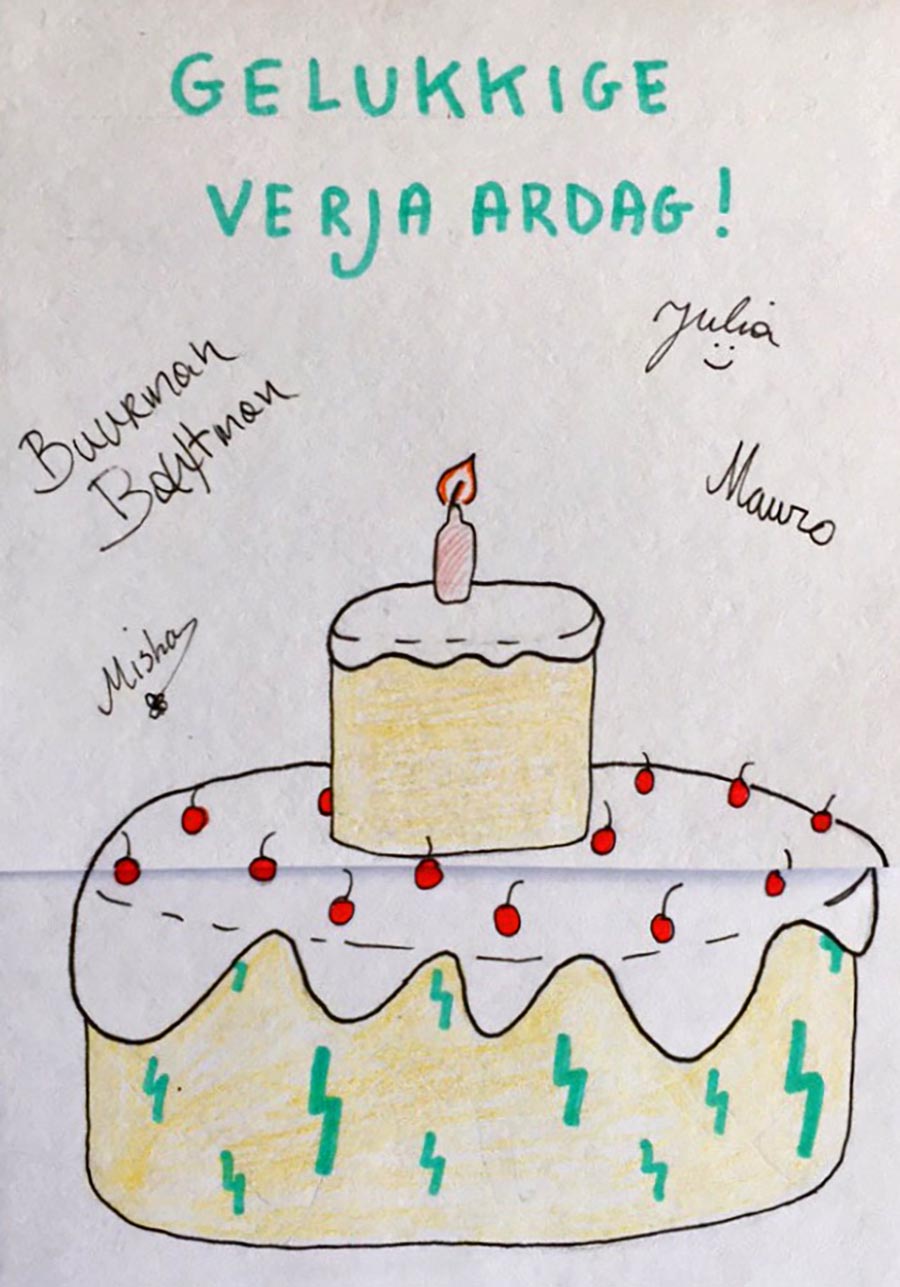 GELUKKIGE
VERJA ARDAG!
Julia
Buurman
Mauro
Misha